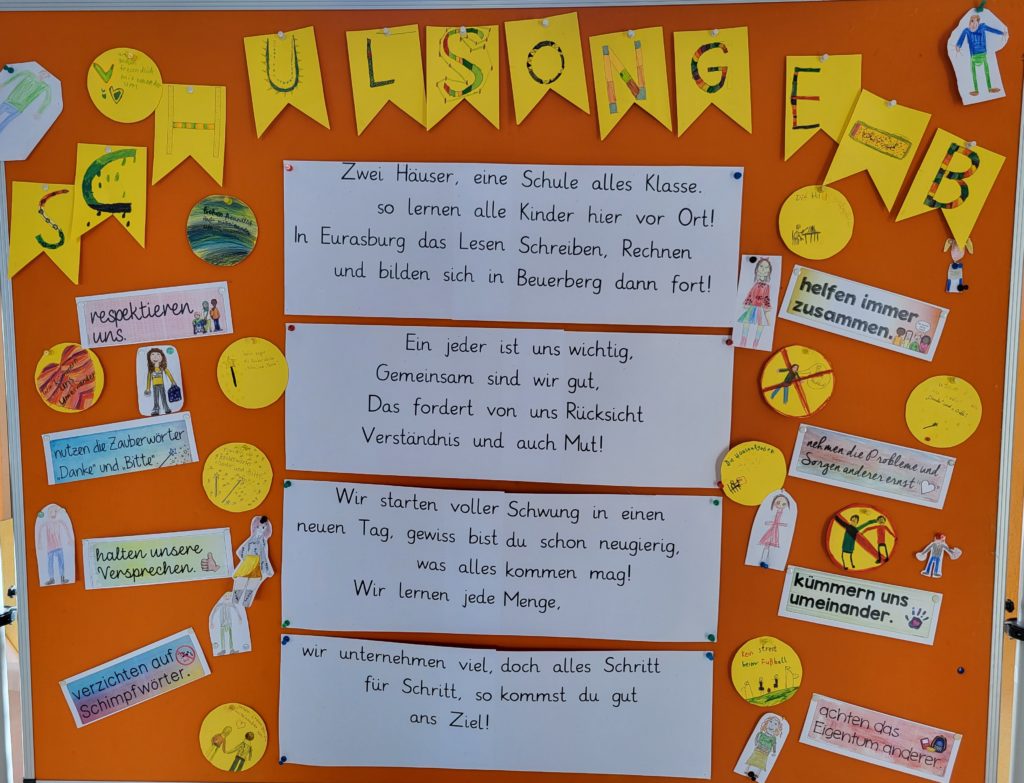 SCHULSONG E-B
Zwei Häuser, eine Schule alles Klasse.
so lernen alle Kinder hier vor Ort!
In Eurasburg das Lesen Schreiben, Rechnen
und bilden sich in Beuerberg dann fort!
Ein jeder ist uns wichtig,
Gemeinsam sind wir gut,
Das fordert von uns Rücksicht
Verständnis und auch Mut!
Wir starten voller Schwung in einen
neuen Tag, gewiss bist du schon neugierig,
was alles kommen mag!
Wir lernen jede Menge,
wir unternehmen viel, doch alles Schritt
für Schritt, so kommst du gut
ans Ziel!
respektieren
uns.
nutzen die Zauberwörter
„Danke" und „Bitte".
halten unsere
Versprechen.
verzichten auf
Schimpfwörter.
helfen immer
zusammen.
nehmen die Probleme und
Sorgen anderer ernst"
kümmern uns
umeinander.
Kein streit
beim Fußball
achten das
Eigentum anderer.